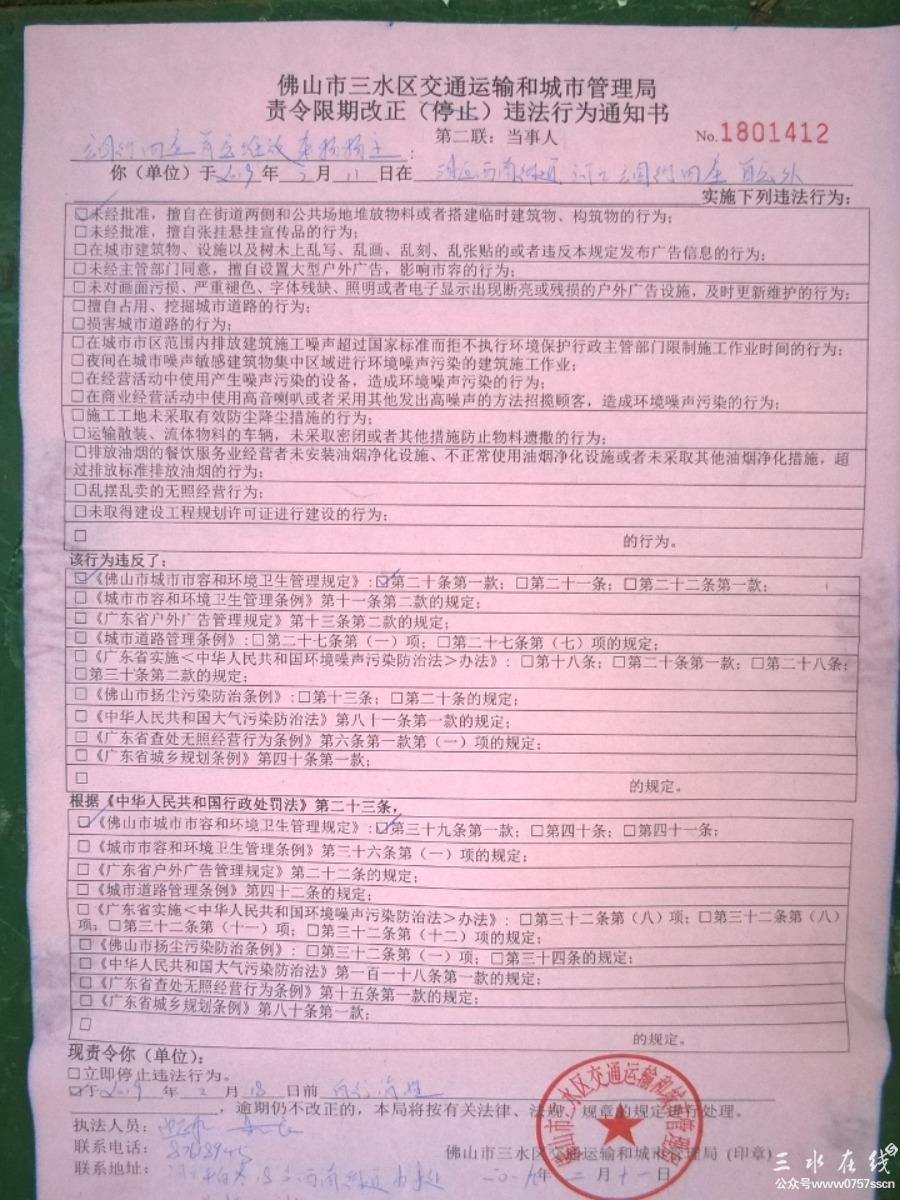 佛山市三水区交通运输和城市管理局
责令限期改正（停止）违法行为通知书
第二联：当事人
No.1801412
你（单位）于2019年2月11日在
实施下列违法行为：
☑未经批准，擅自在街道两侧和公共场地堆放物料或者搭建临时建筑物、构筑物的行为；
□未经批准，擅自张挂悬挂宣传品的行为；
□在城市建筑物、设施以及树木上乱写、乱画、乱刻、乱张贴的或者违反本规定发布广告信息的行为；
□未经主管部门同意，擅自设置大型户外广告，影响市容的行为；
□未对画面污损、严重褪色、字体残缺、照明或者电子显示出现断亮或残损的户外广告设施，及时更新维护的行为；
□擅自占用、挖掘城市道路的行为；
□损害城市道路的行为；
□在城市市区范围内排放建筑施工噪声超过国家标准而拒不执行环境保护行政主管部门限制施工作业时间的行为；
□夜间在城市噪声敏感建筑物集中区域进行环境噪声污染的建筑施工作业；
□在经营活动中使用产生噪声污染的设备，造成环境噪声污染的行为；
□在商业经营活动中使用高音喇叭或者采用其他发出高噪声的方法招揽顾客，造成环境噪声污染的行为；
□施工工地未采取有效防尘降尘措施的行为；
□运输散装、流体物料的车辆，未采取密闭或者其他措施防止物料遗撒的行为；
□排放油烟的餐饮服务业经营者未安装油烟净化设施、不正常使用油烟净化设施或者未采取其他油烟净化措施，超
过排放标准排放油烟的行为；
□乱摆乱卖的无照经营行为；
□未取得建设工程规划许可证进行建设的行为；
□ 的行为。
该行为违反了：
☑《佛山市城市市容和环境卫生管理规定》:☑第二十条第一款；□第二十一条；□第二十二条第一款；
□《城市市容和环境卫生管理条例》第十一条第二款的规定；
□《广东省户外广告管理规定》第十三条第二款的规定；
□《城市道路管理条例》:□第二十七条第（一）项；□第二十七条第（七）项的规定；
□《广东省实施<中华人民共和国环境噪声污染防治法>办法》：□第十八条；□第二十条第一款；□第二十八条；
□第三十条第二款的规定；
□《佛山市扬尘污染防治条例》:□第十三条；□第二十条的规定；
□《中华人民共和国大气污染防治法》第八十一条第一款的规定；
□《广东省查处无照经营行为条例》第六条第一款第（一）项的规定；
□《广东省城乡规划条例》第四十条第一款；
□ 的规定。
根据《中华人民共和国行政处罚法》第二十三条，
☑《佛山市城市市容和环境卫生管理规定》:☑第三十九条第一款；□第四十条；□第四十一条；
□《城市市容和环境卫生管理条例》第三十六条第（一）项的规定；
□《广东省户外广告管理规定》第二十二条的规定；
□《城市道路管理条例》第四十二条的规定；
□《广东省实施<中华人民共和国环境噪声污染防治法>办法》：□第三十二条第（八）项；□第三十二条第（八）
项；□第三十二条第（十一）项；□第三十二条第（十二）项的规定；
□《佛山市扬尘污染防治条例》：□第三十二条第（一）项；□第三十四条的规定；
□《中华人民共和国大气污染防治法》第一百一十八条第一款的规定；
□《广东省查处无照经营行为条例》第十五条第一款的规定；
□《广东省城乡规划条例》第八十条第一款；
□ 的规定。
现责令你（单位）：
□立即停止违法行为。
☑于2019年2月18日前
，逾期仍不改正的，本局将按有关法律、法规、规章的规定进行处理。
执法人员：
联系电话：
联系地址：
佛山市三水区交通运输和城市管理局（印章）
二〇一九年二月十一日
佛山市三水区交通运输和城市管理局
三水在线
公众号www0757sscn